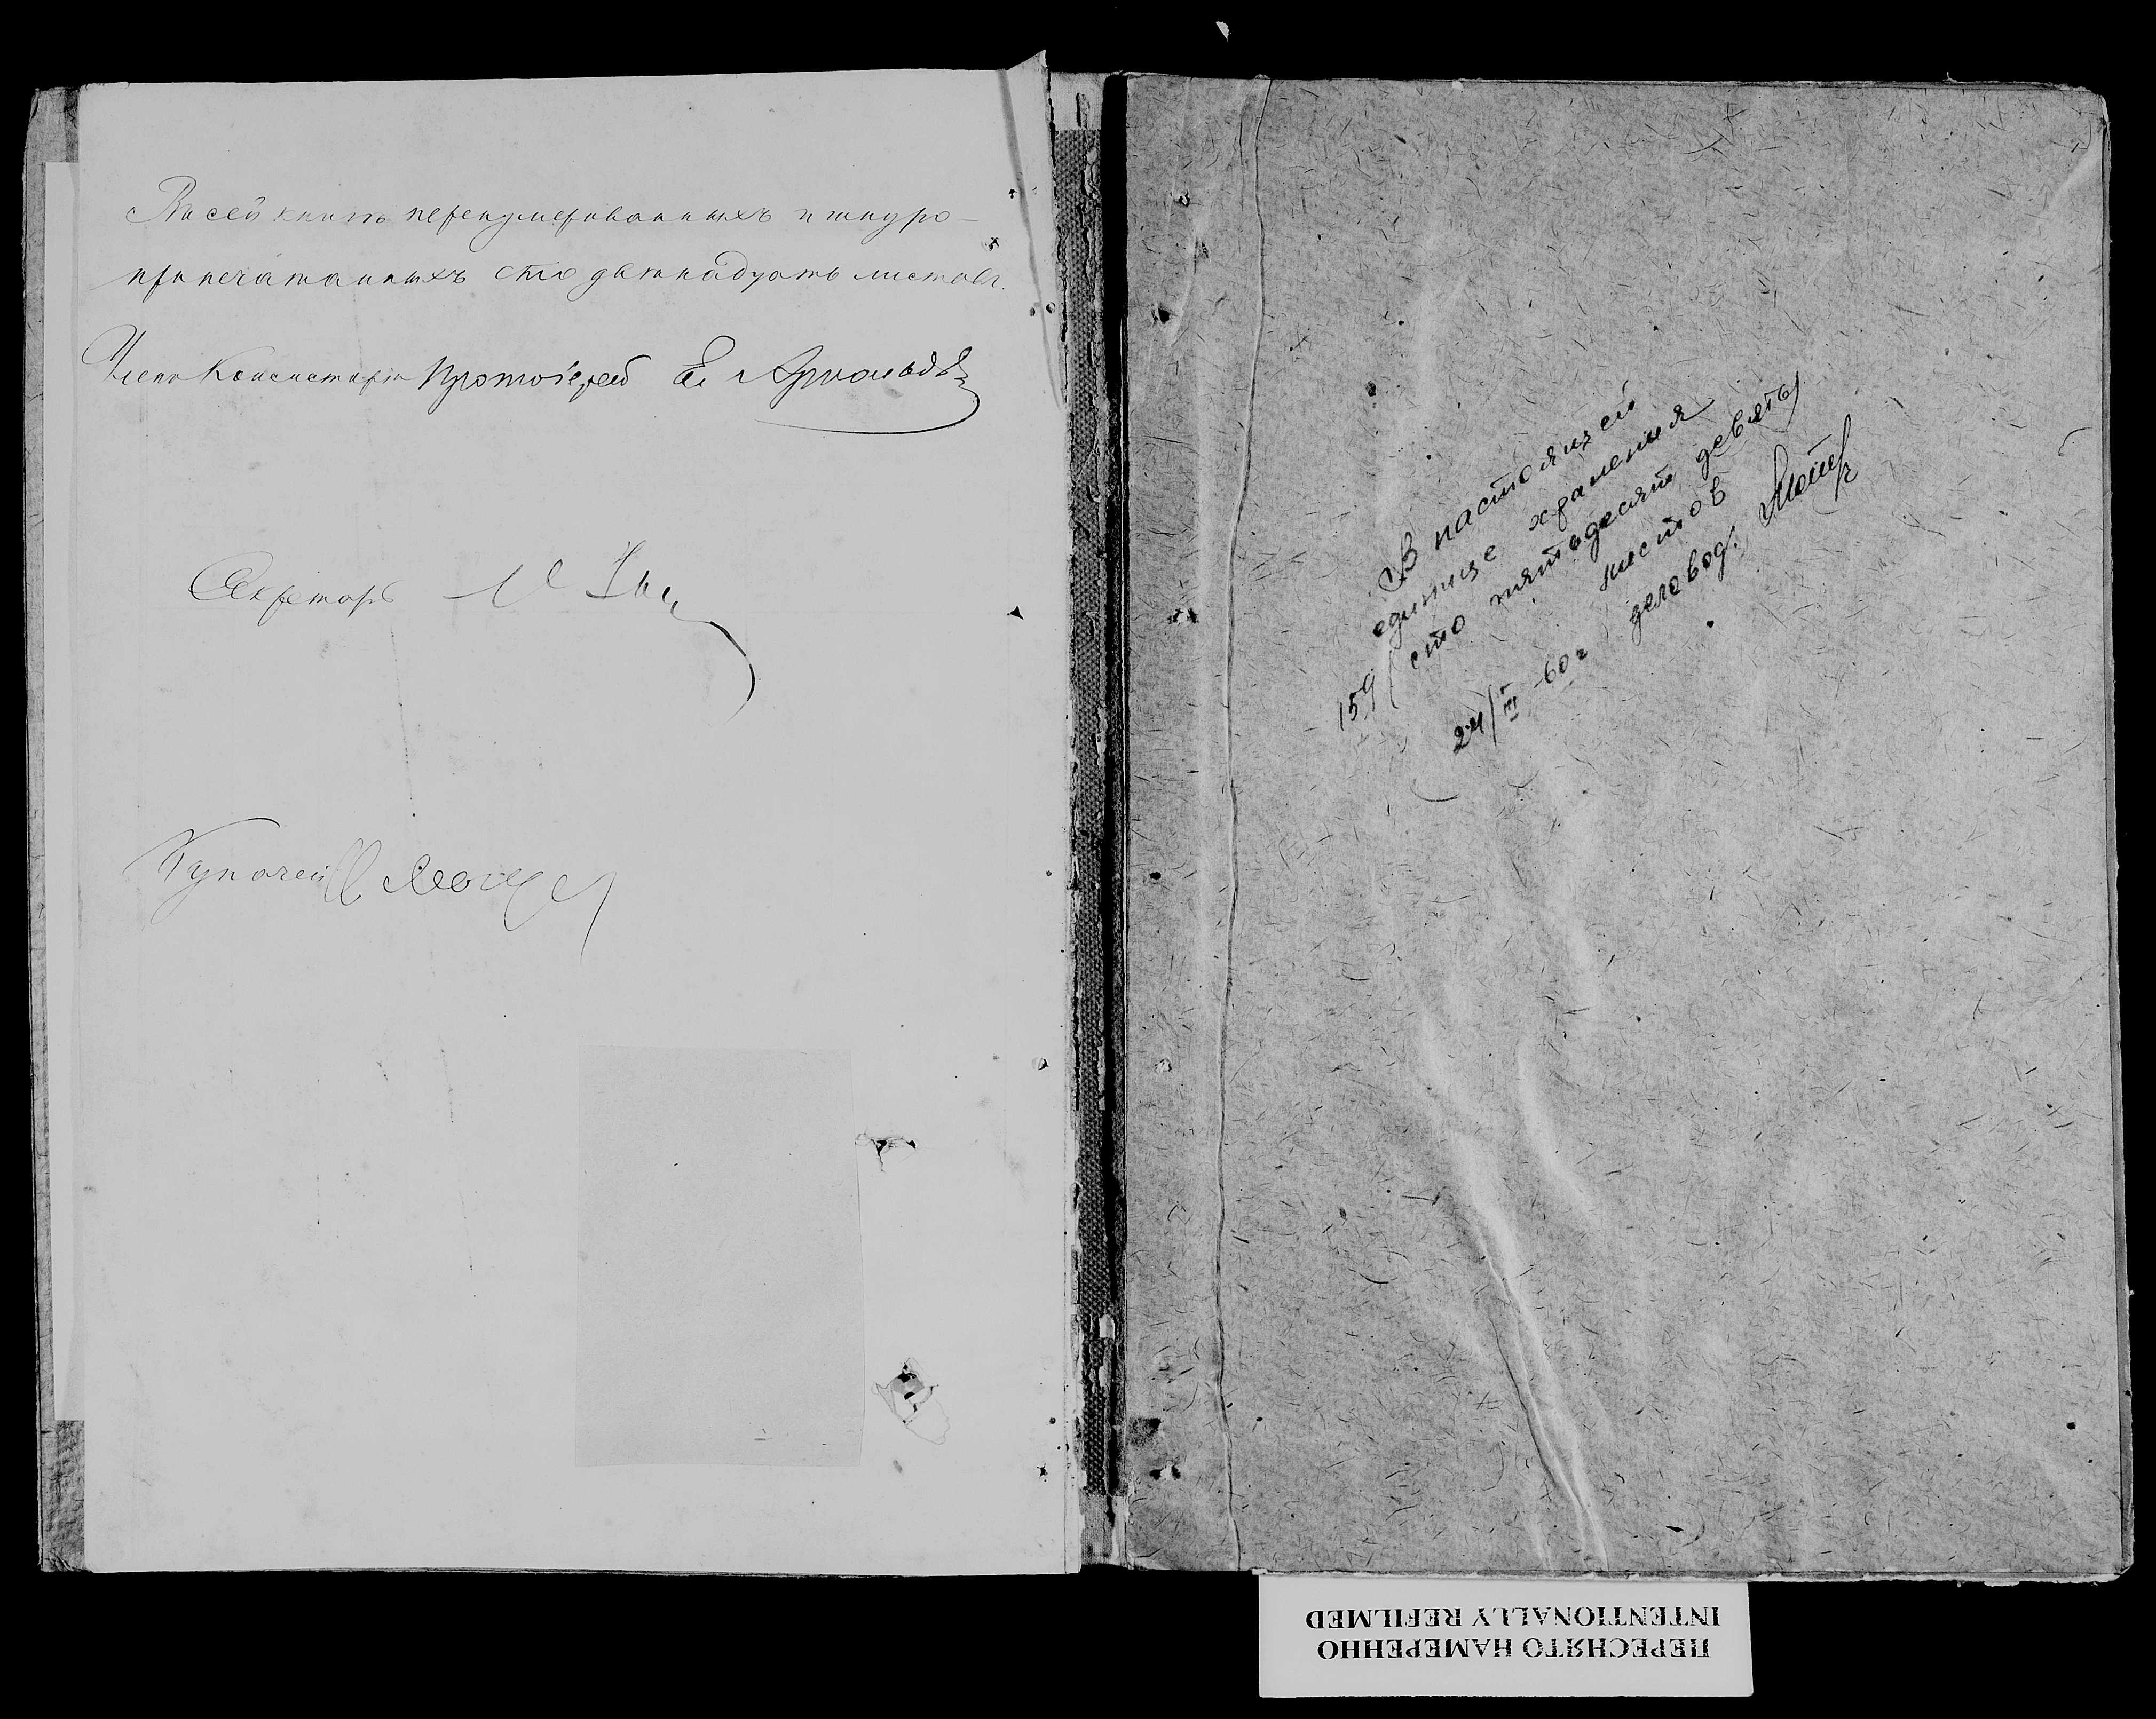 Въ сей книгѣ перенумерованныхъ и шнуро-
припечатанныхъ сто двенадцать листовъ.
Членъ Консисторіи Протоіерей Е. Арнольдовъ
Секретарь
В настоящей
единице хранения
159 (сто пятьдесят девять)
листов
24/III 60 г делевод.
INTENTIONALLY REFILMED
ПЕРЕСНЯТО НАМЕРЕННО